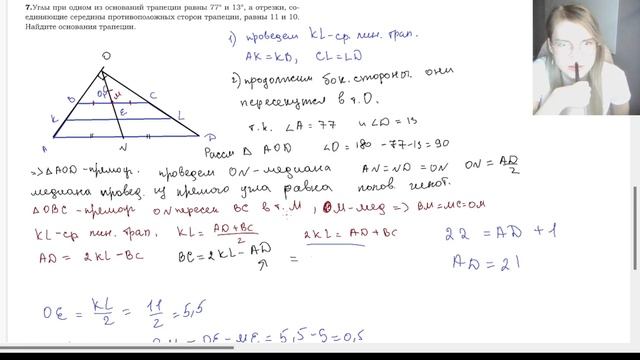 7.Углы при одном из оснований трапеции равны 77° и 13°, а отрезки, со-
единяющие середины противоположных сторон трапеции, равны 11 и 10.
Найдите основания трапеции.
1) проведем KL-ср. лин. трап.
AK=KB, CL=LD
2) продолжим бок. стороны они
пересекутся в т.О.
т.к. ∠A=77 и ∠D=13
Рассм △ AOD ∠O=180-77-13=90
=>△AOD-прямоуг. проведем ON-медиана AN=ND=ON ON=AD/2
медиана провед. из прямого угла равна полов. гипот.
△OBC-прямоуг ON пересек BC в т.М, OM-мед => BM=MC=OM
KL-ср лин. трап, KL=AD+BC/2 2KL=AD+BC
AD=2KL-BC BC=2KL-AD =
22=AD+1
AD=21
OE=KL/2=11/2=5,5
=OE-ME=5,5-5=0,5
O
B
M
C
K
E
L
A
N
D